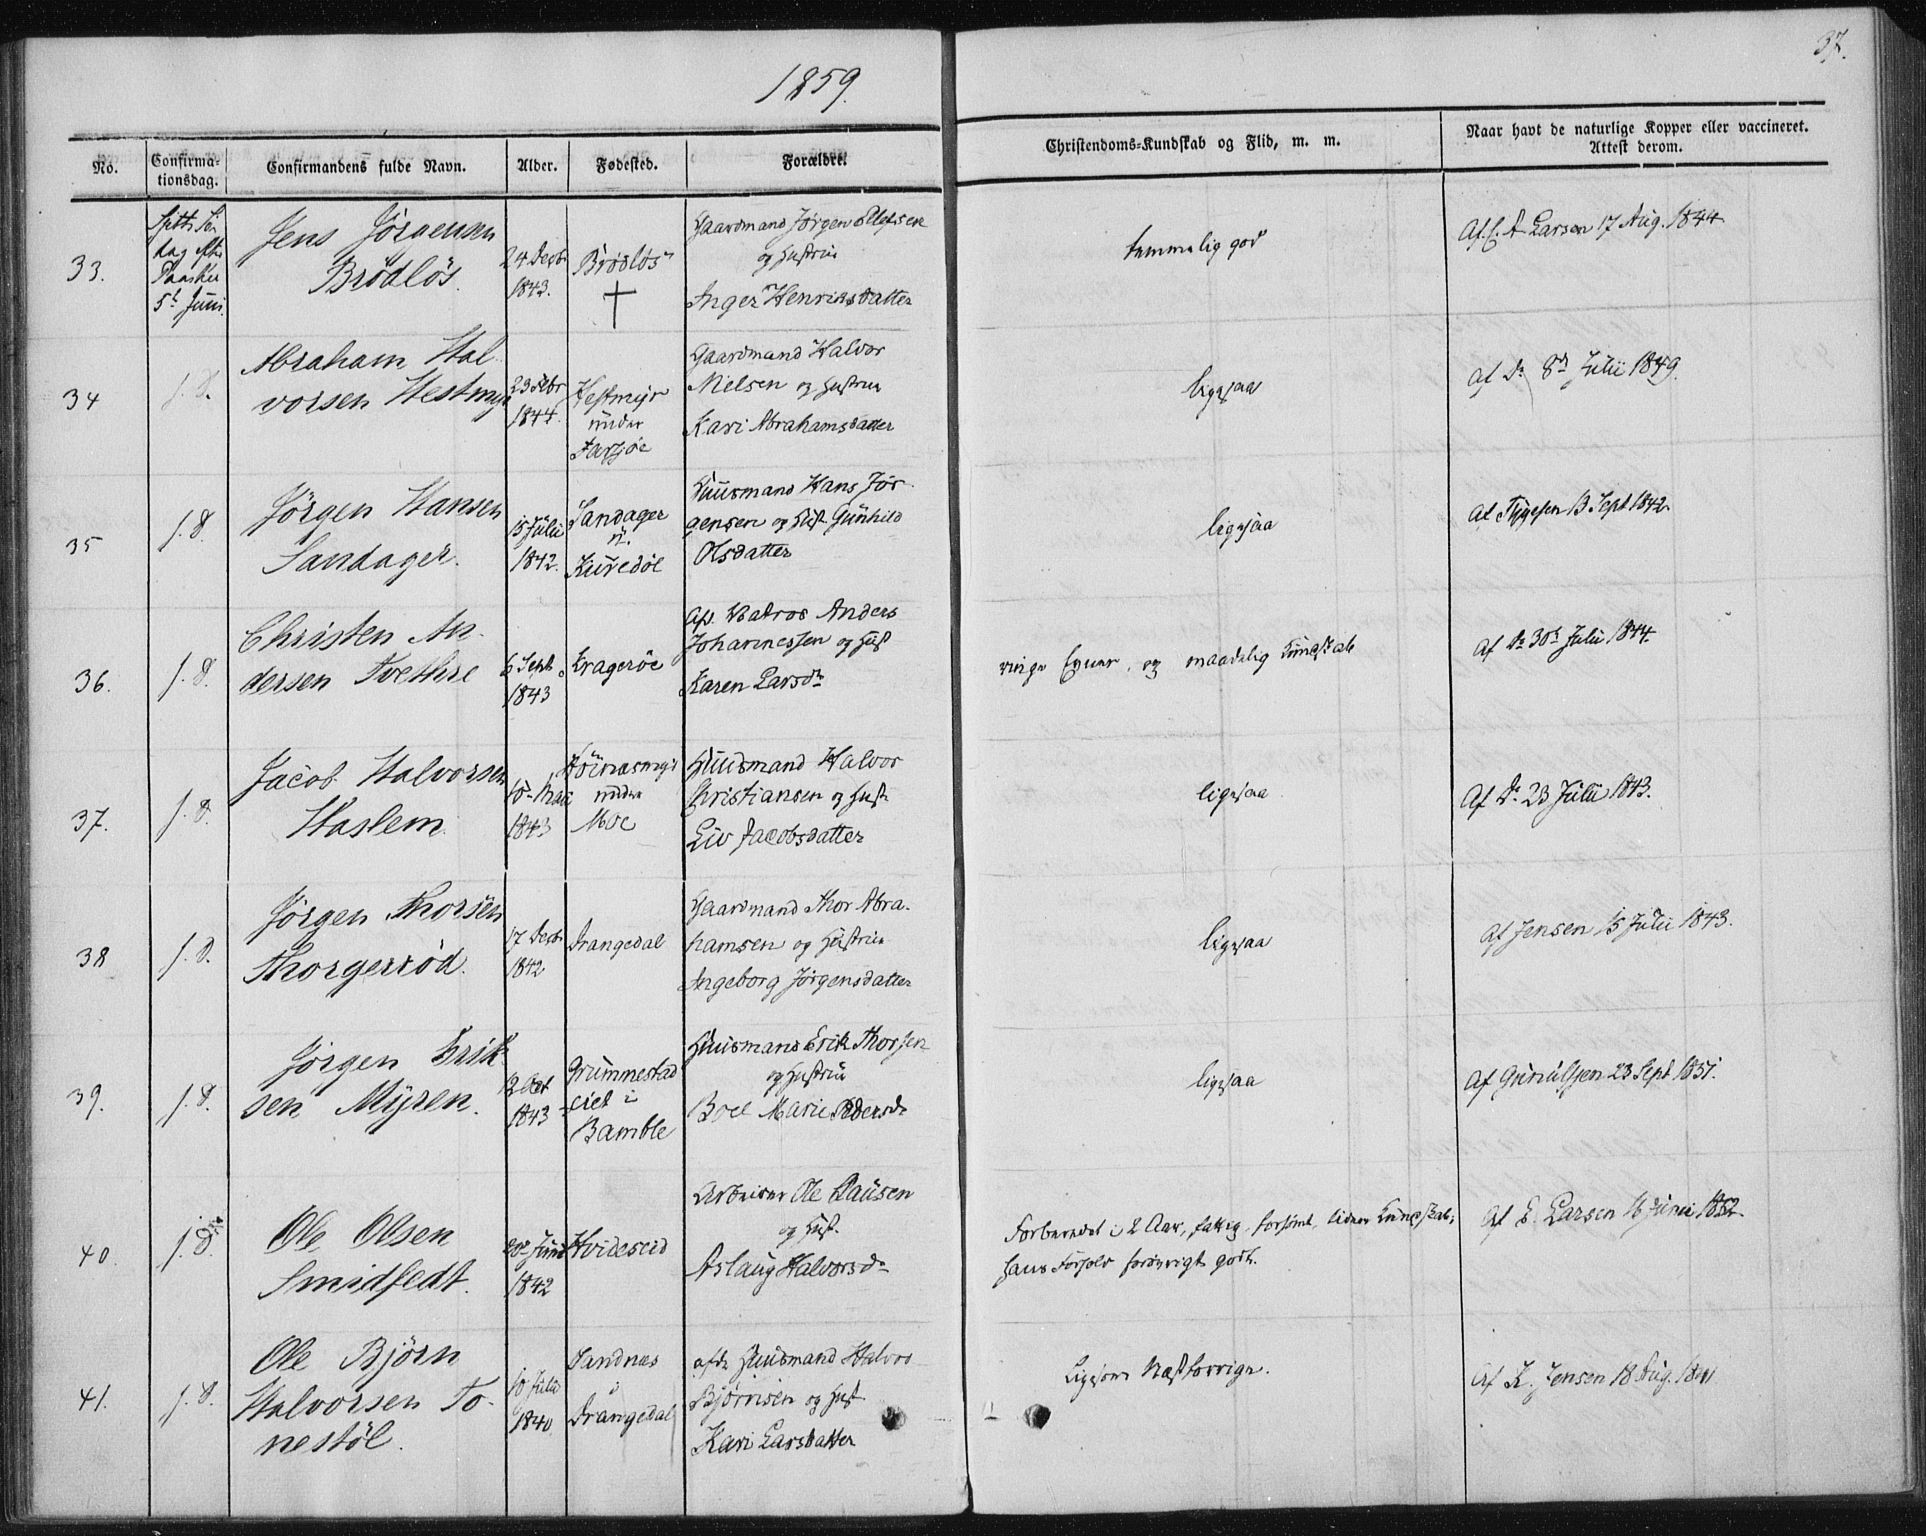 1859.
37.
No.
Confirma-
tionsdag.
Confirmandens fulde Navn.
Alder.
Fødested.
Forældre.
Christendoms-Kundskab og Flid, m. m.
Naar havt de naturlige Kopper eller vaccineret.
Attest derom.
33.
Paaske
5t Juni.
Jens Jörgensen
Brödlös.
24 Decbr
1843.
Brödlös
Gaardmand Jörgen Ellefsen
og Hustru
Inger Henriksdatter
temmelig god
Af C. A. Larsen 17 Aug. 1844
34
f. D.
Abraham Hal
vorsen Hestmyr
23 Febr
1844.
Hestmyr
under
Farsjöe
Gaardmand Halvor
Nielsen og Hustru
Kari Abrahamsdatter
ligesaa
Af Do 8de Julii 1849.
35
f. D.
Jörgen Hansen
Sandager.
15 Julii
1842.
Sandager
u.
Kuredöl
Huusmand Hans Jör
gensen og Hust Gunhild
Olsdatter
ligesaa
Af Tygesen 13 Sept 1842.
36.
f. D.
Christen An
dersen Tvethre
6 Sept
1843
Kragerøe
Afd. Matros Anders
Johannessen og Hust
Karen Larsdr
ringe Evner, og maadelig Kundskab
Af Do 30t Julii 1844.
37.
f. D.
Jacob Halvorsen
Haslem
10 Mai
1843
under
Moe
Huusmand Halvor
Christiansen og Hust
Liv Jacobsdatter
ligesaa
Af Do 23 Julii 1843.
38
f. D.
Jörgen Thorsen
Thorgersöd.
17 Decbr
1842
Drangedal
Gaardmand Thor Abra-
hamsen og Hustru
Ingeborg Jörgensdatter
ligesaa
Af Jensen 15 Julii 1843.
39.
f. D.
Jörgen Erik
sen Myren.
12 Oct
1843
Grummestad
eiet i
Bamble
Huusmand Erik Thorsen
og Hustru
Boel Marie Pedersdr
ligesaa
Af Grunulfsen 23 Sept 1851.
40.
f. D.
Ole Olsen
Smidsedt.
20 Juni
1842
Hvideseid
Arbeider Ole Paulsen
og Hust.
Aslaug Halvorsdr
Forberedet i 2 Aar, fattig, forsömt, liden Kundskab;
hans Forhold forövrigt godt.
Af E. Larsen 16 Junii 1852
41.
f. D.
Ole Björn
Halvorsen To-
nestöl.
10 Julii
1840
Sandnæs
i
Drangedal
afdr Huusmand Halvor
Björnsen og Hust
Kari Larsdatter
Ligesom Næstforrige.
Af K. Jensen 18 Aug. 1841